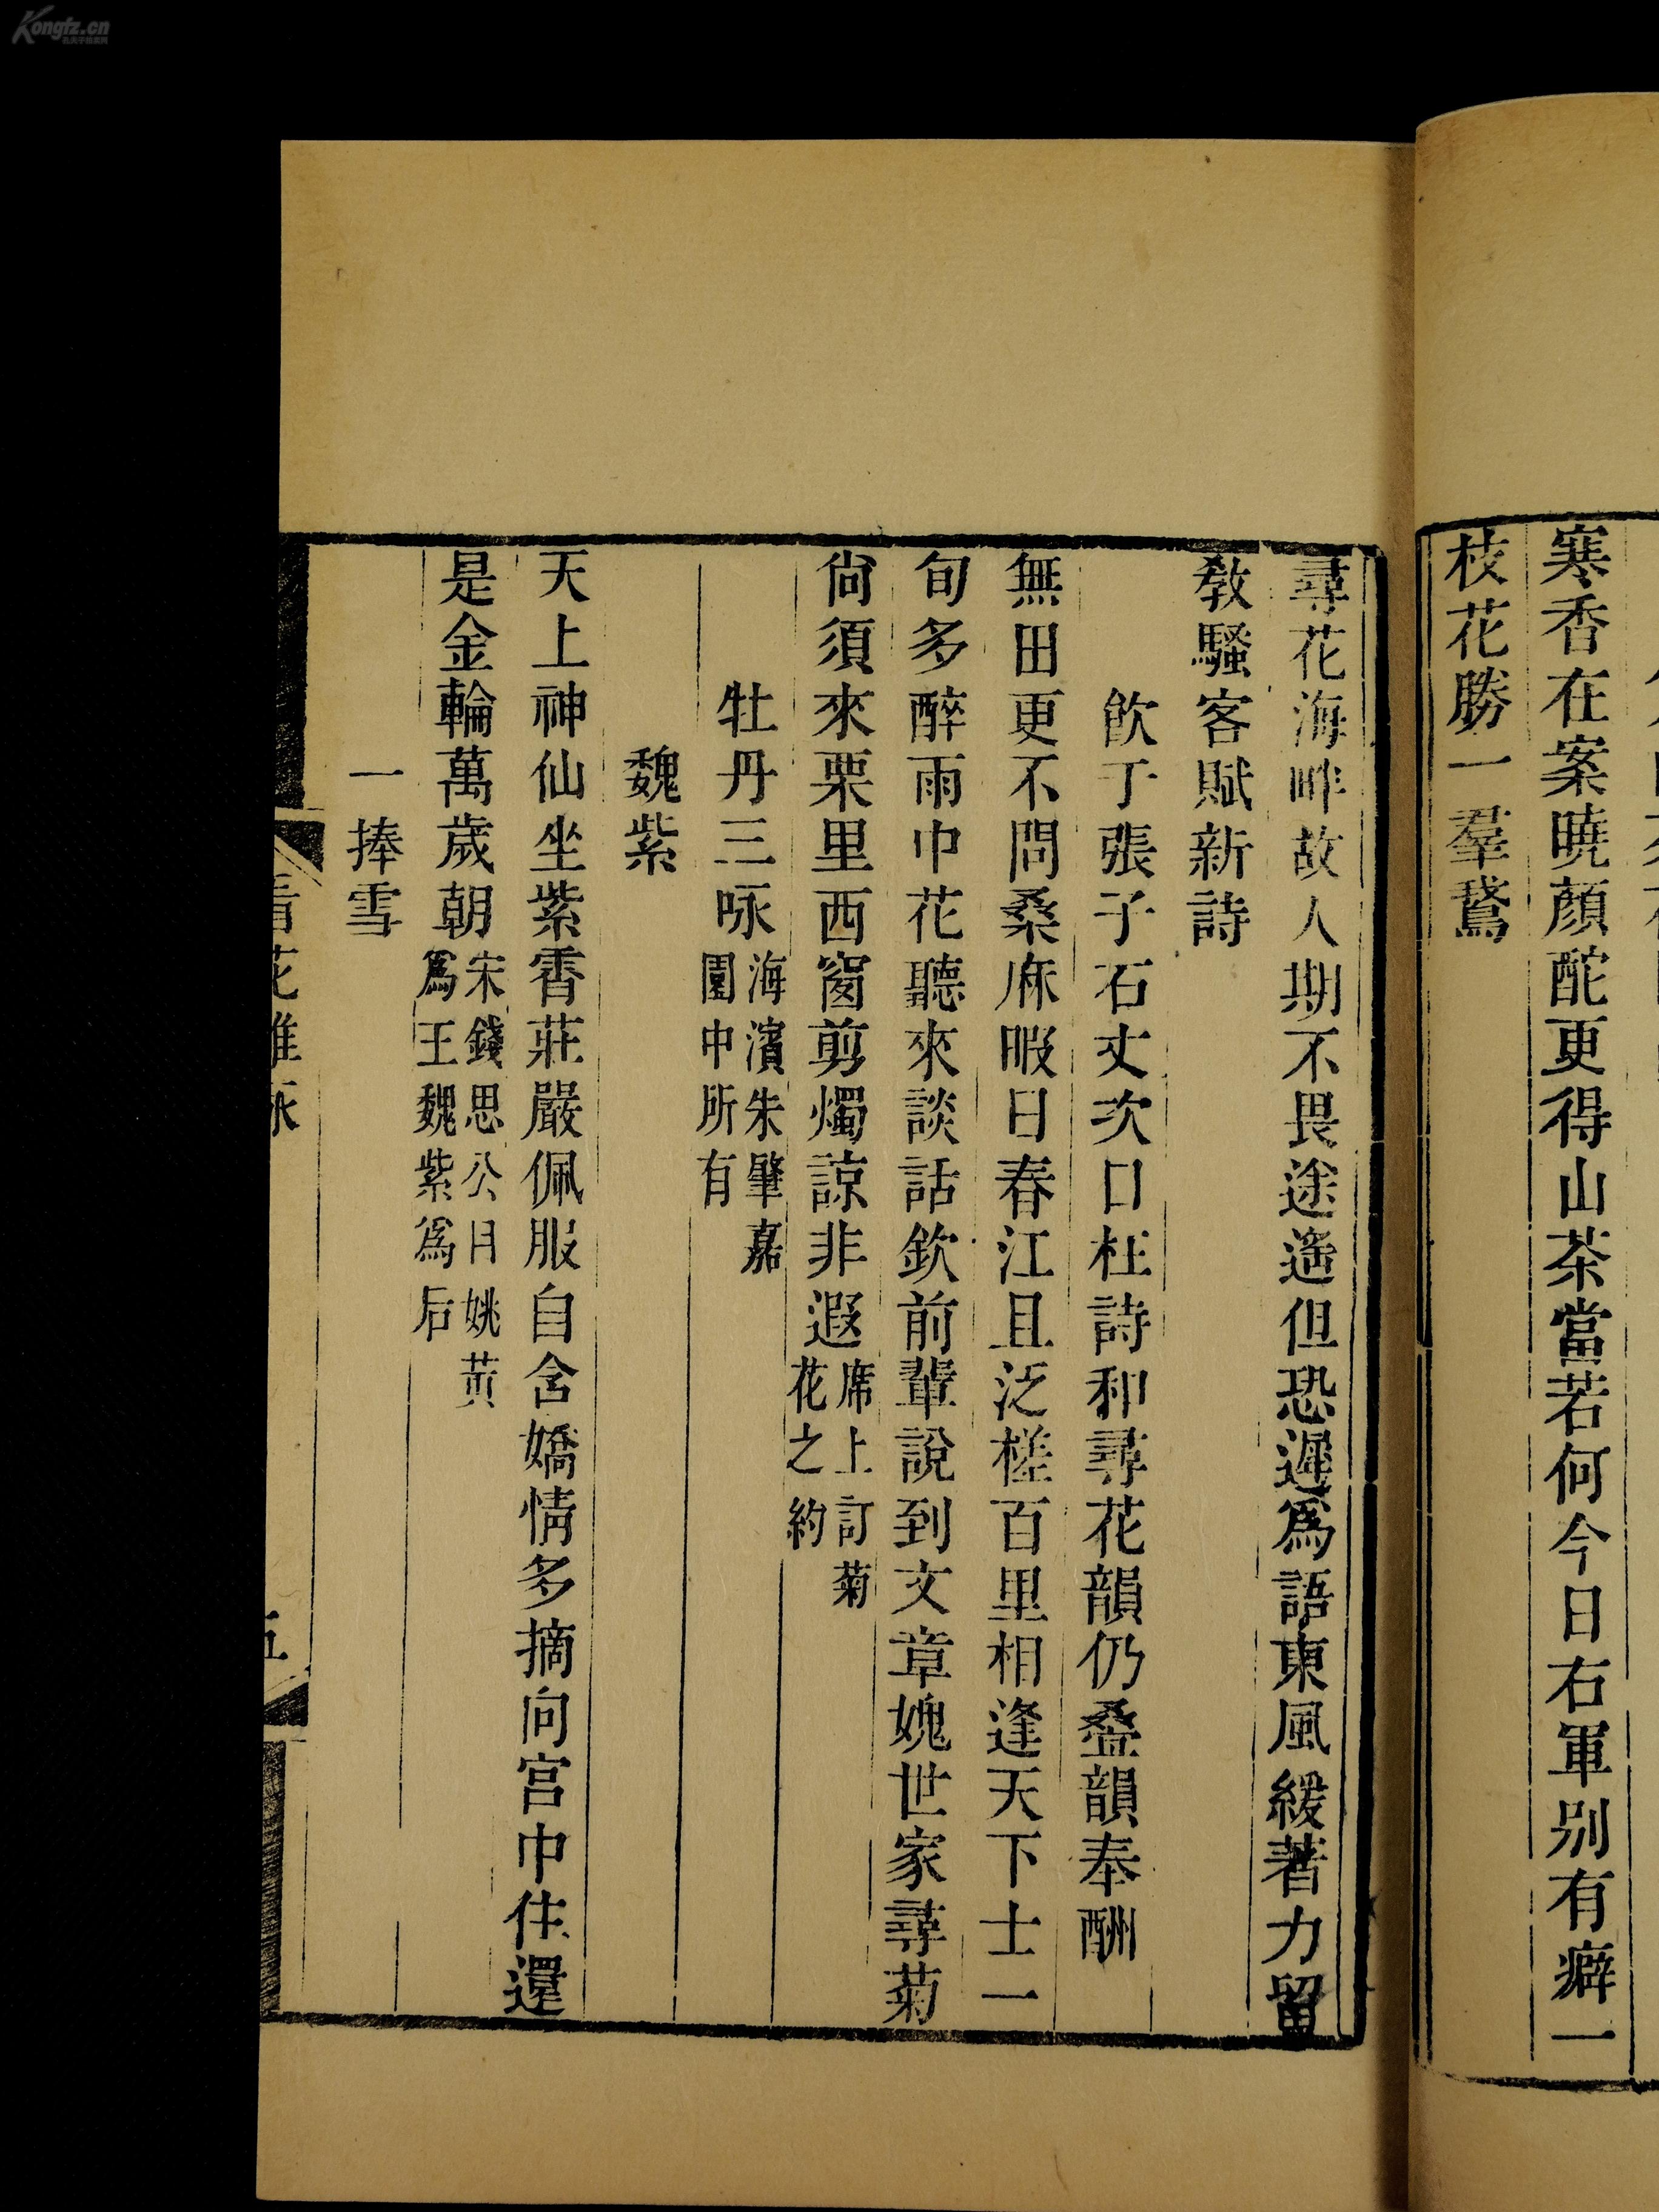 寒香在案曉顏酡更得山茶當若何今日右軍别有癖一
枝花勝一羣鵞
尋花海畔故人期不畏途遙但恐遲爲語東風緩著力留
敎騷客賦新詩
飮于張子石丈次日枉詩和尋花韻仍叠韻奉酬
無田更不問桑麻暇日春江且泛槎百里相逢天下士一
旬多醉雨中花聽來談話欽前輩說到文章媿世家尋菊
尙須來栗里西窗剪燭諒非遐席上訂菊花之約
牡丹三咏海濱朱肇嘉園中所有
魏紫
天上神仙坐紫霄莊嚴佩服自含嬌情多摘向宫中住還
是金輪萬歲朝宋錢思公曰姚黃爲王魏紫爲后
一捧雪
看花雜咏
五
Kongfz.cn